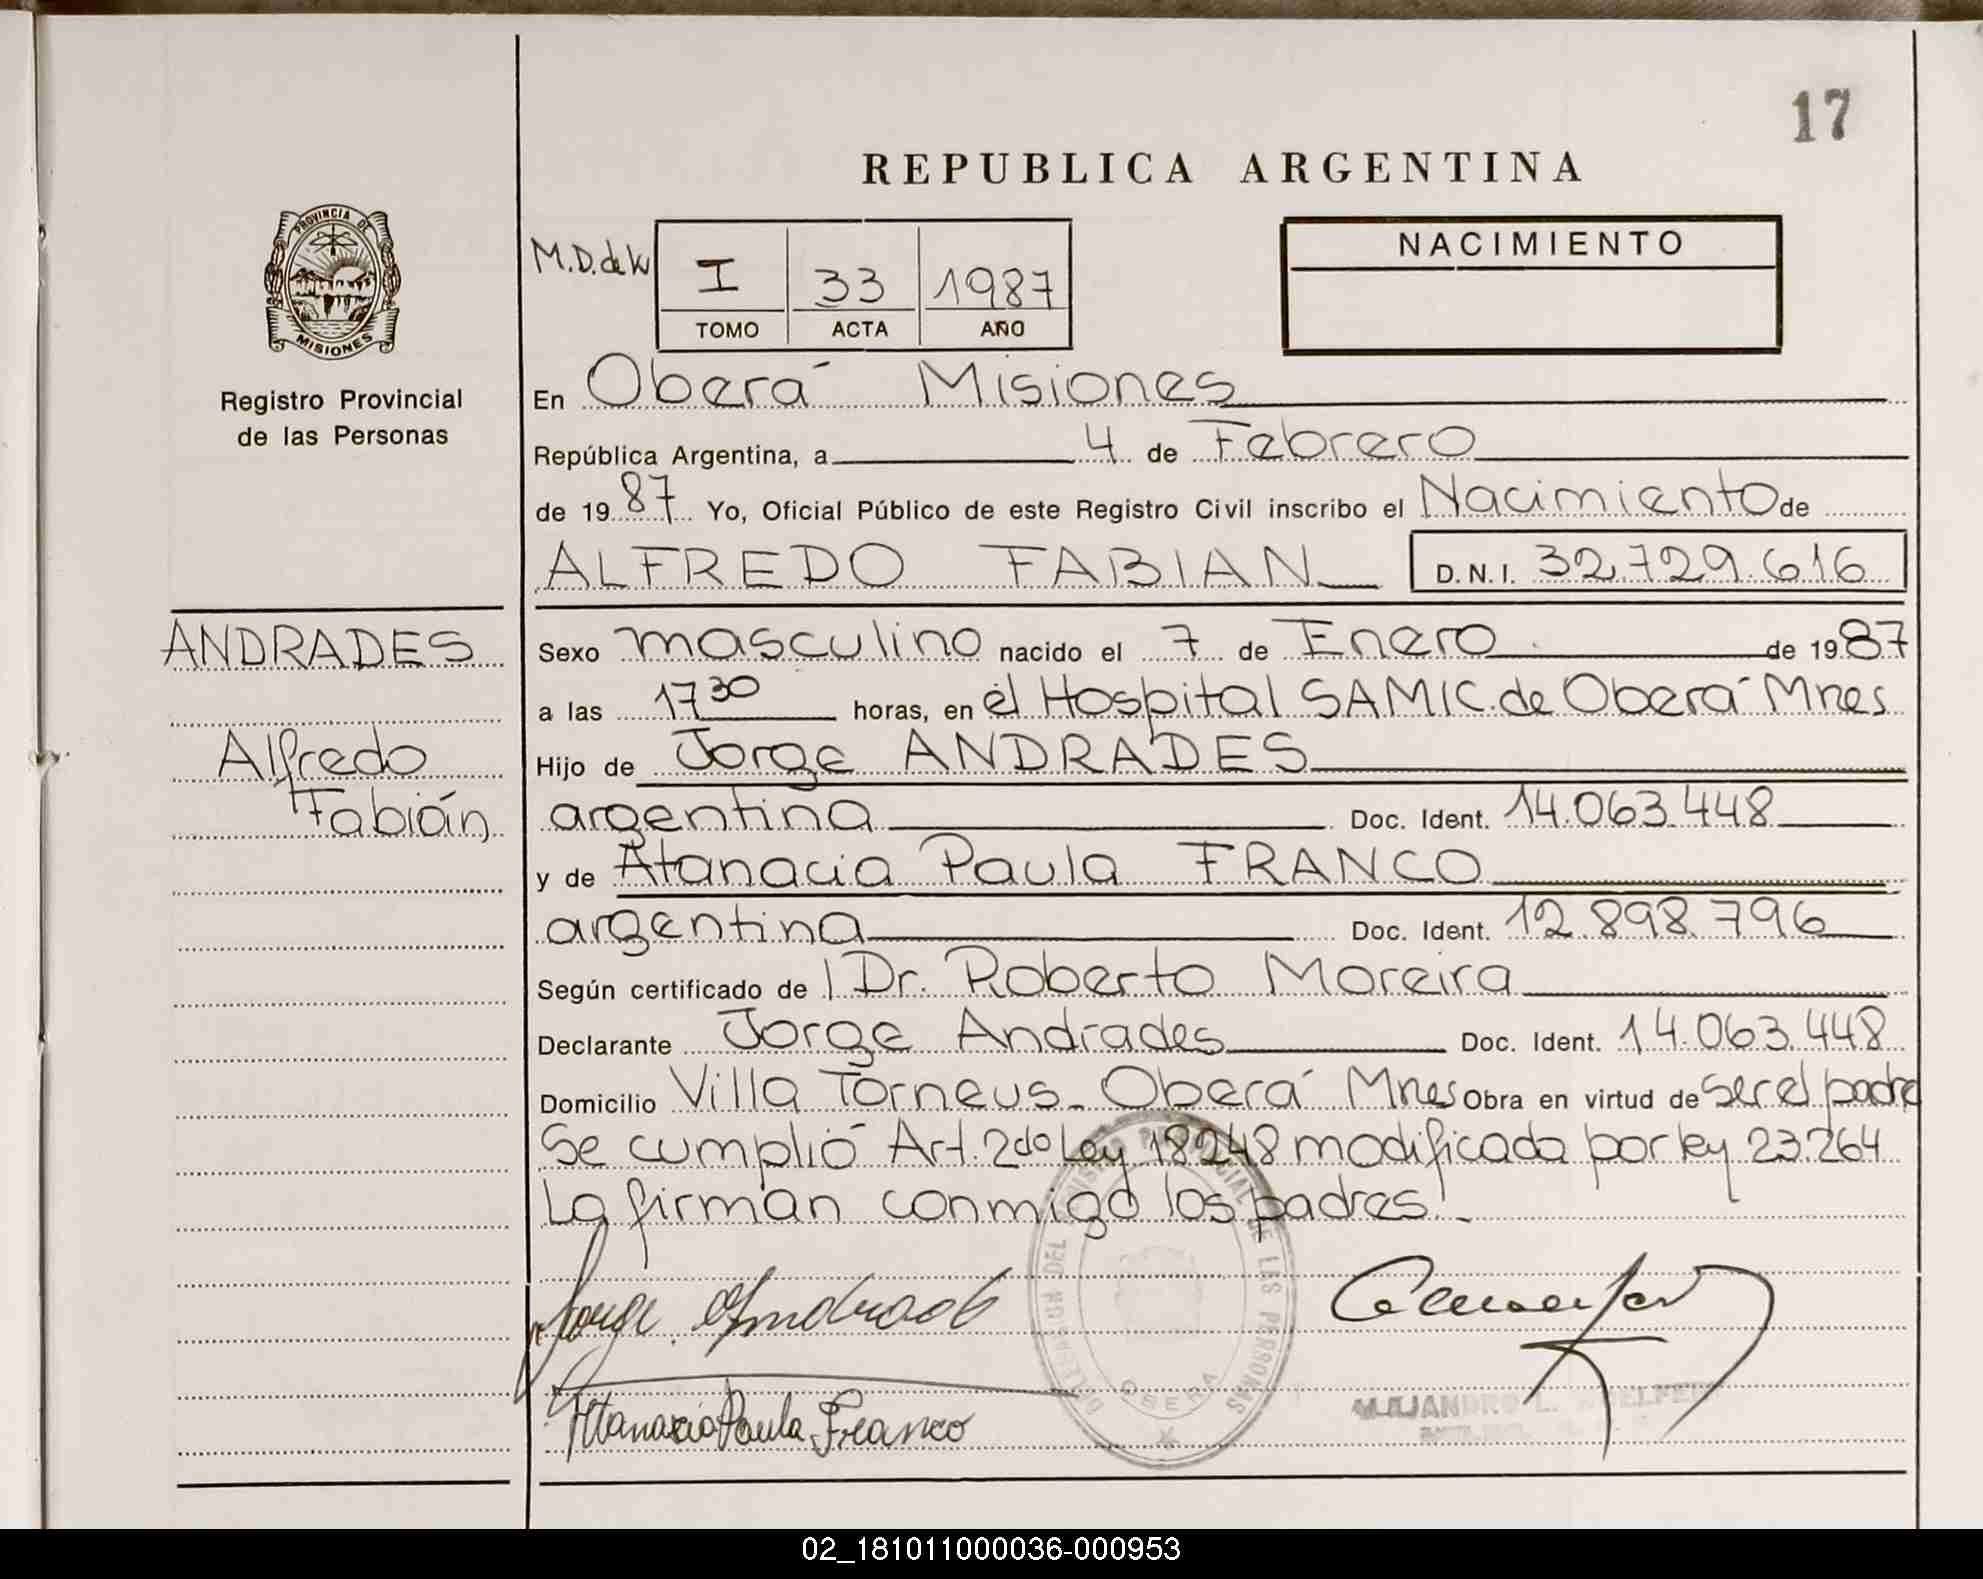 17
REPUBLICA ARGENTINA
PROVINCIA DE
MISIONES
Registro Provincial
de las Personas
M.D. de
I 33 1987
TOMO ACTA AÑO
NACIMIENTO
En Oberá Misiones
República Argentina, a 4 de Febrero
de 1987 Yo, Oficial Público de este Registro Civil inscribo el Nacimiento de
ALFREDO FABIAN D.N.I. 32.729.616
ANDRADES
Alfredo
Fabián
Sexo masculino nacido el 7 de Enero de 1987
a las 17 30 horas, en el Hospital SAMIC. de Oberá Mnes
Hijo de Jorge ANDRADES
argentina Doc. Ident. 14.063.448
y de Atanacia Paula FRANCO
argentina Doc. Ident. 12.898.796
Según certificado de l Dr. Roberto Moreira
Declarante Jorge Andrades Doc. Ident. 14.063.448
Domicilio Villa Torneus - Oberá Mnes Obra en virtud de ser el padre
Se cumplió Art. 2do Ley 18248 modificada por ley 23.264
La firman conmigo los padres.
DELEGACION DEL REGISTRO PROVINCIAL DE LAS PERSONAS
OBERA
Jorge Andrade
Atanacia Paula Franco
ALEJANDRO L.
02_181011000036-000953